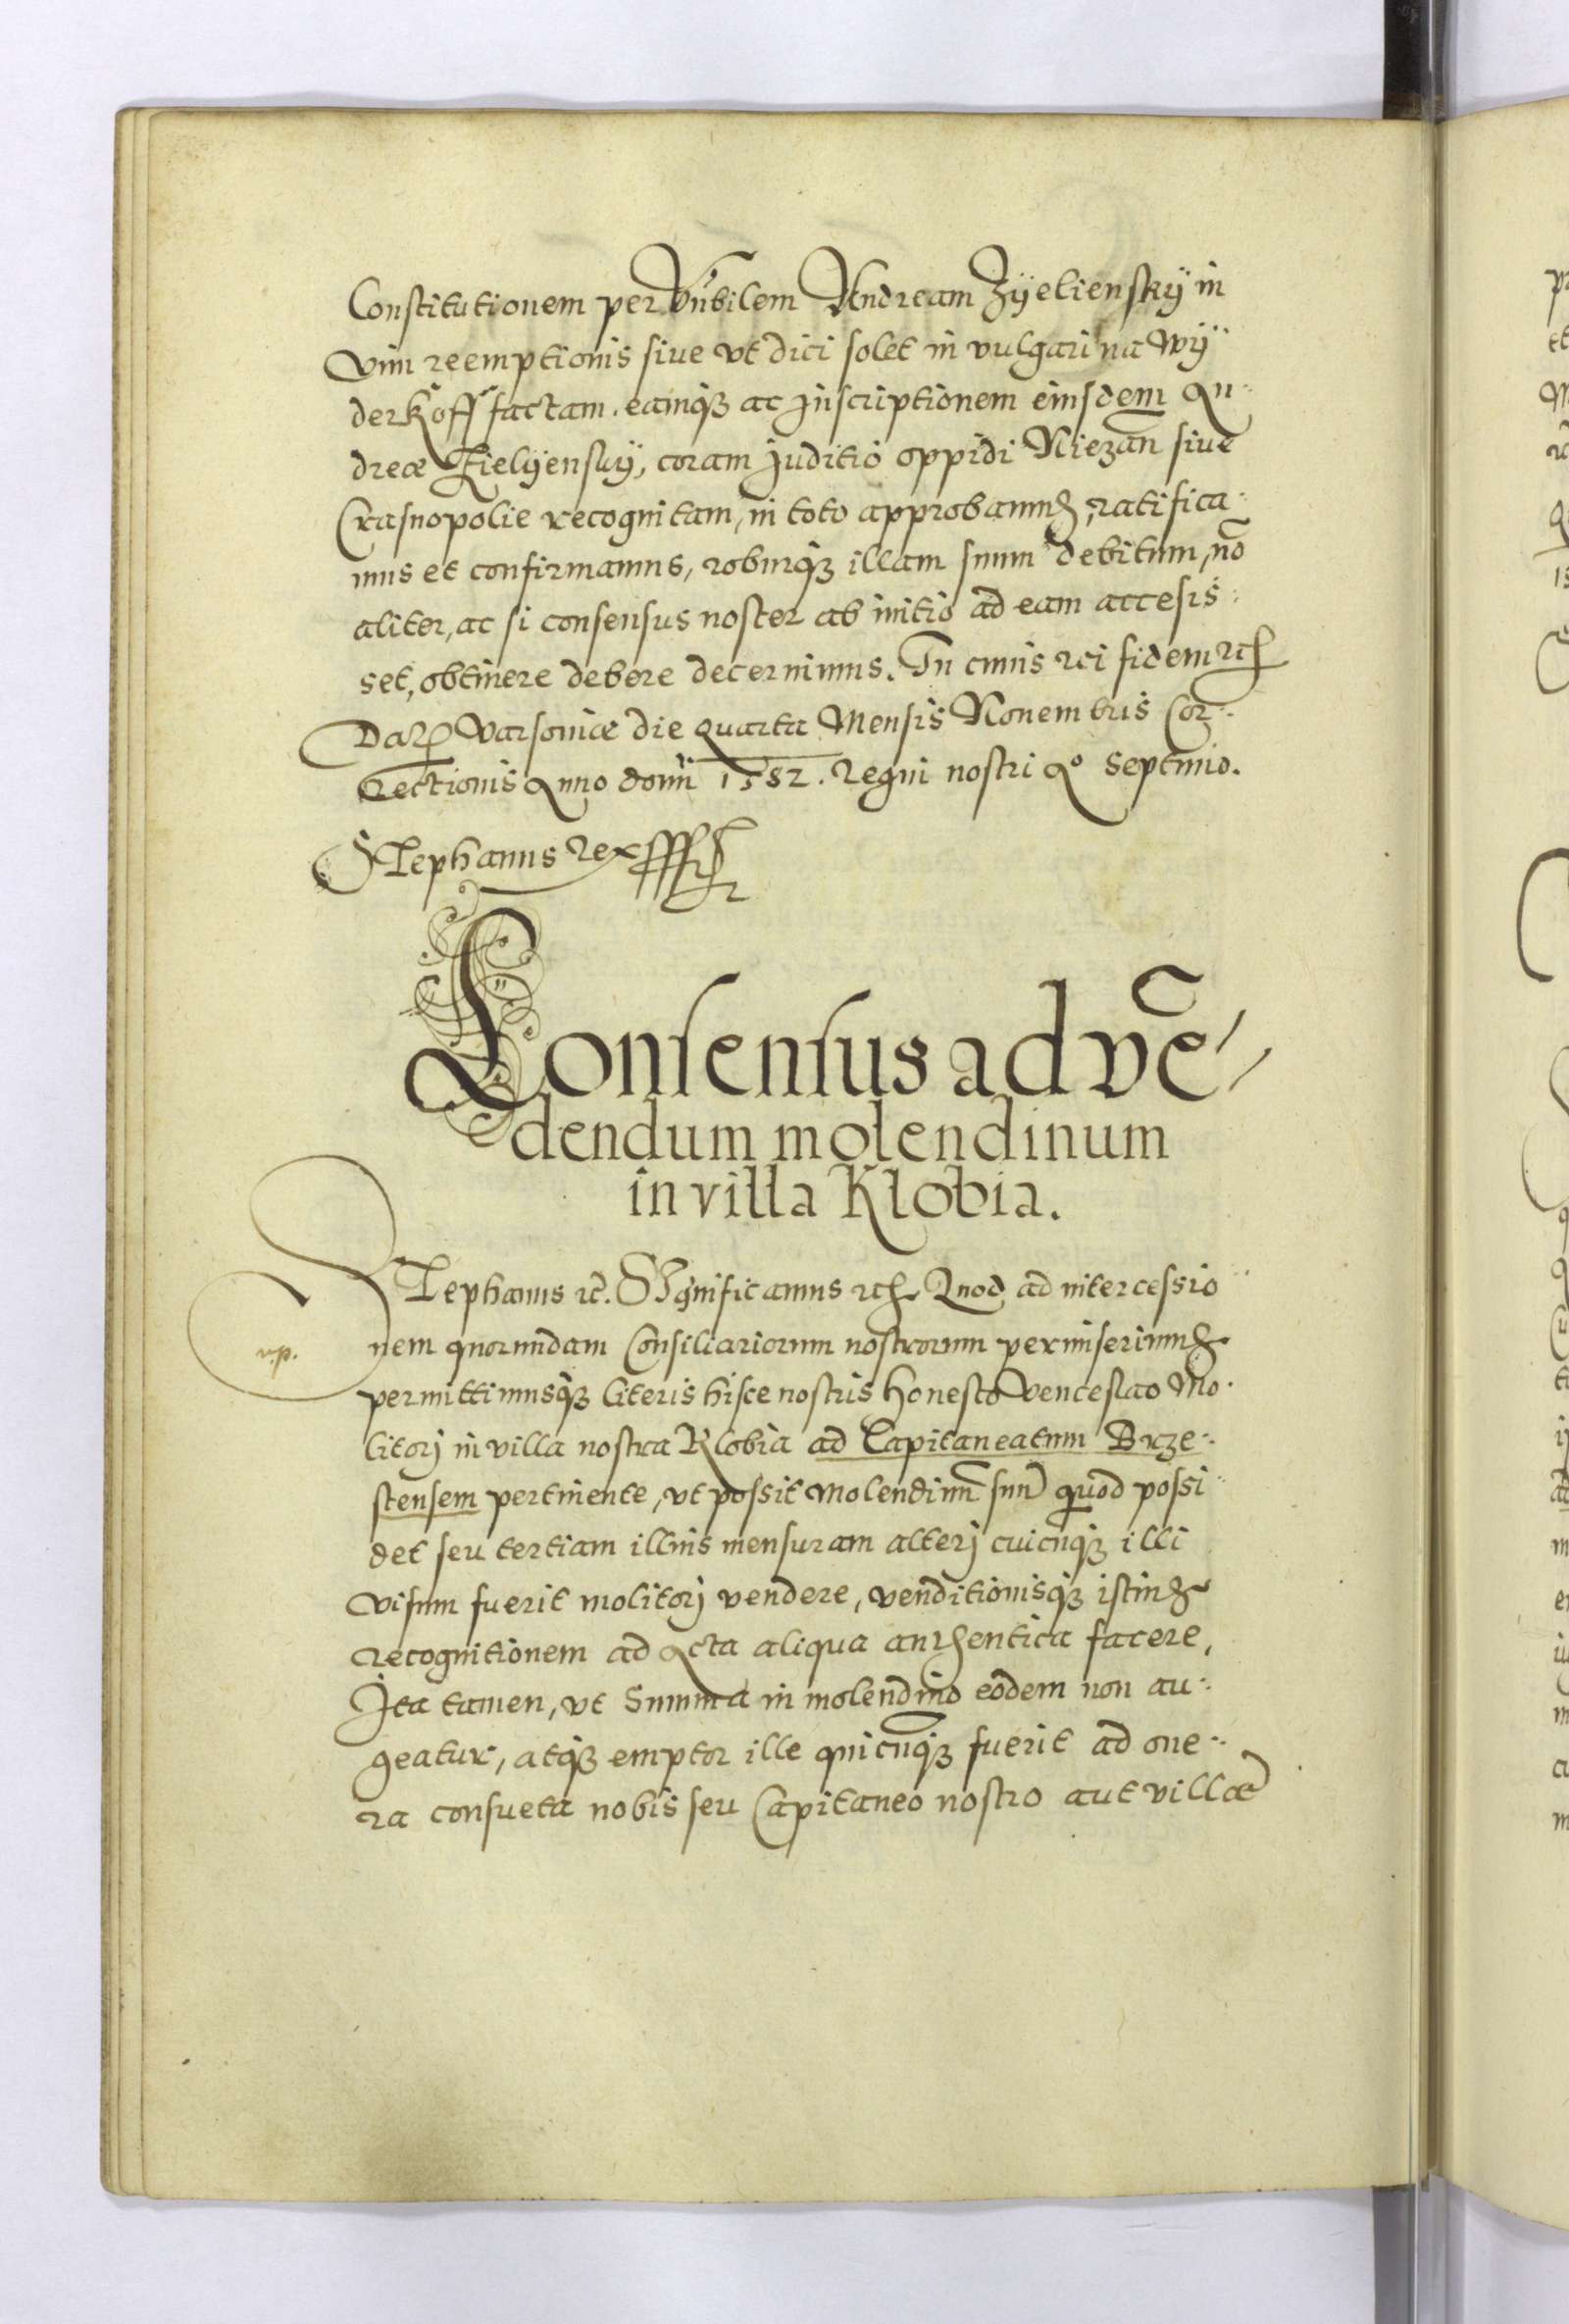 Constitutionem per Nobilem Andream Zÿelienskÿ in
vim reemptionis siue vt dici solet in vulgari na wÿ
derkoff factam. eamqȝ ac Inscriptionem eiusdem An
dreæ Zielÿenskÿ, coram Juditio oppidi Niezan̄ siue
Crasnopolie recognitam, in toto approbamus, ratifica
mus et confirmamus, roburqȝ illam suum debitum, nō
aliter, ac si consensus noster ab initio ad eam accesis
set, obtinere debere decernimus. In cuius rei fidem etc
Dat Varsouiæ die quarta Mensis Nouembris Cor
rectionis Anno domī 1582. Regni nostri Aº Septimio.
Stephanus Rex
Consensus ad vē
dendum molendinum
in villa Klobia.
Stephanus etc. Significamus etc Quod ad intercessio
nem quorundam Consiliariorum nostrorum permiserimus
permittimusqȝ literis hisce nostris honesto Venceslao Mo
litorj in villa nostra Klobia ad Capitaneatum Brze
stensem pertinente, vt possit Molendinū suū quod possi
det seu tertiam illius mensuram alterj cuicūqȝ illi
visum fuerit molitorj vendere, venditionisqȝ istius
recognitionem ad Acta aliqua authentica facere,
Ita tamen, vt Summa in molendino eodem non au
geatur, atqȝ emptor ille quicūqȝ fuerit ad one
ra consueta nobis seu Capitaneo nostro aut villæ